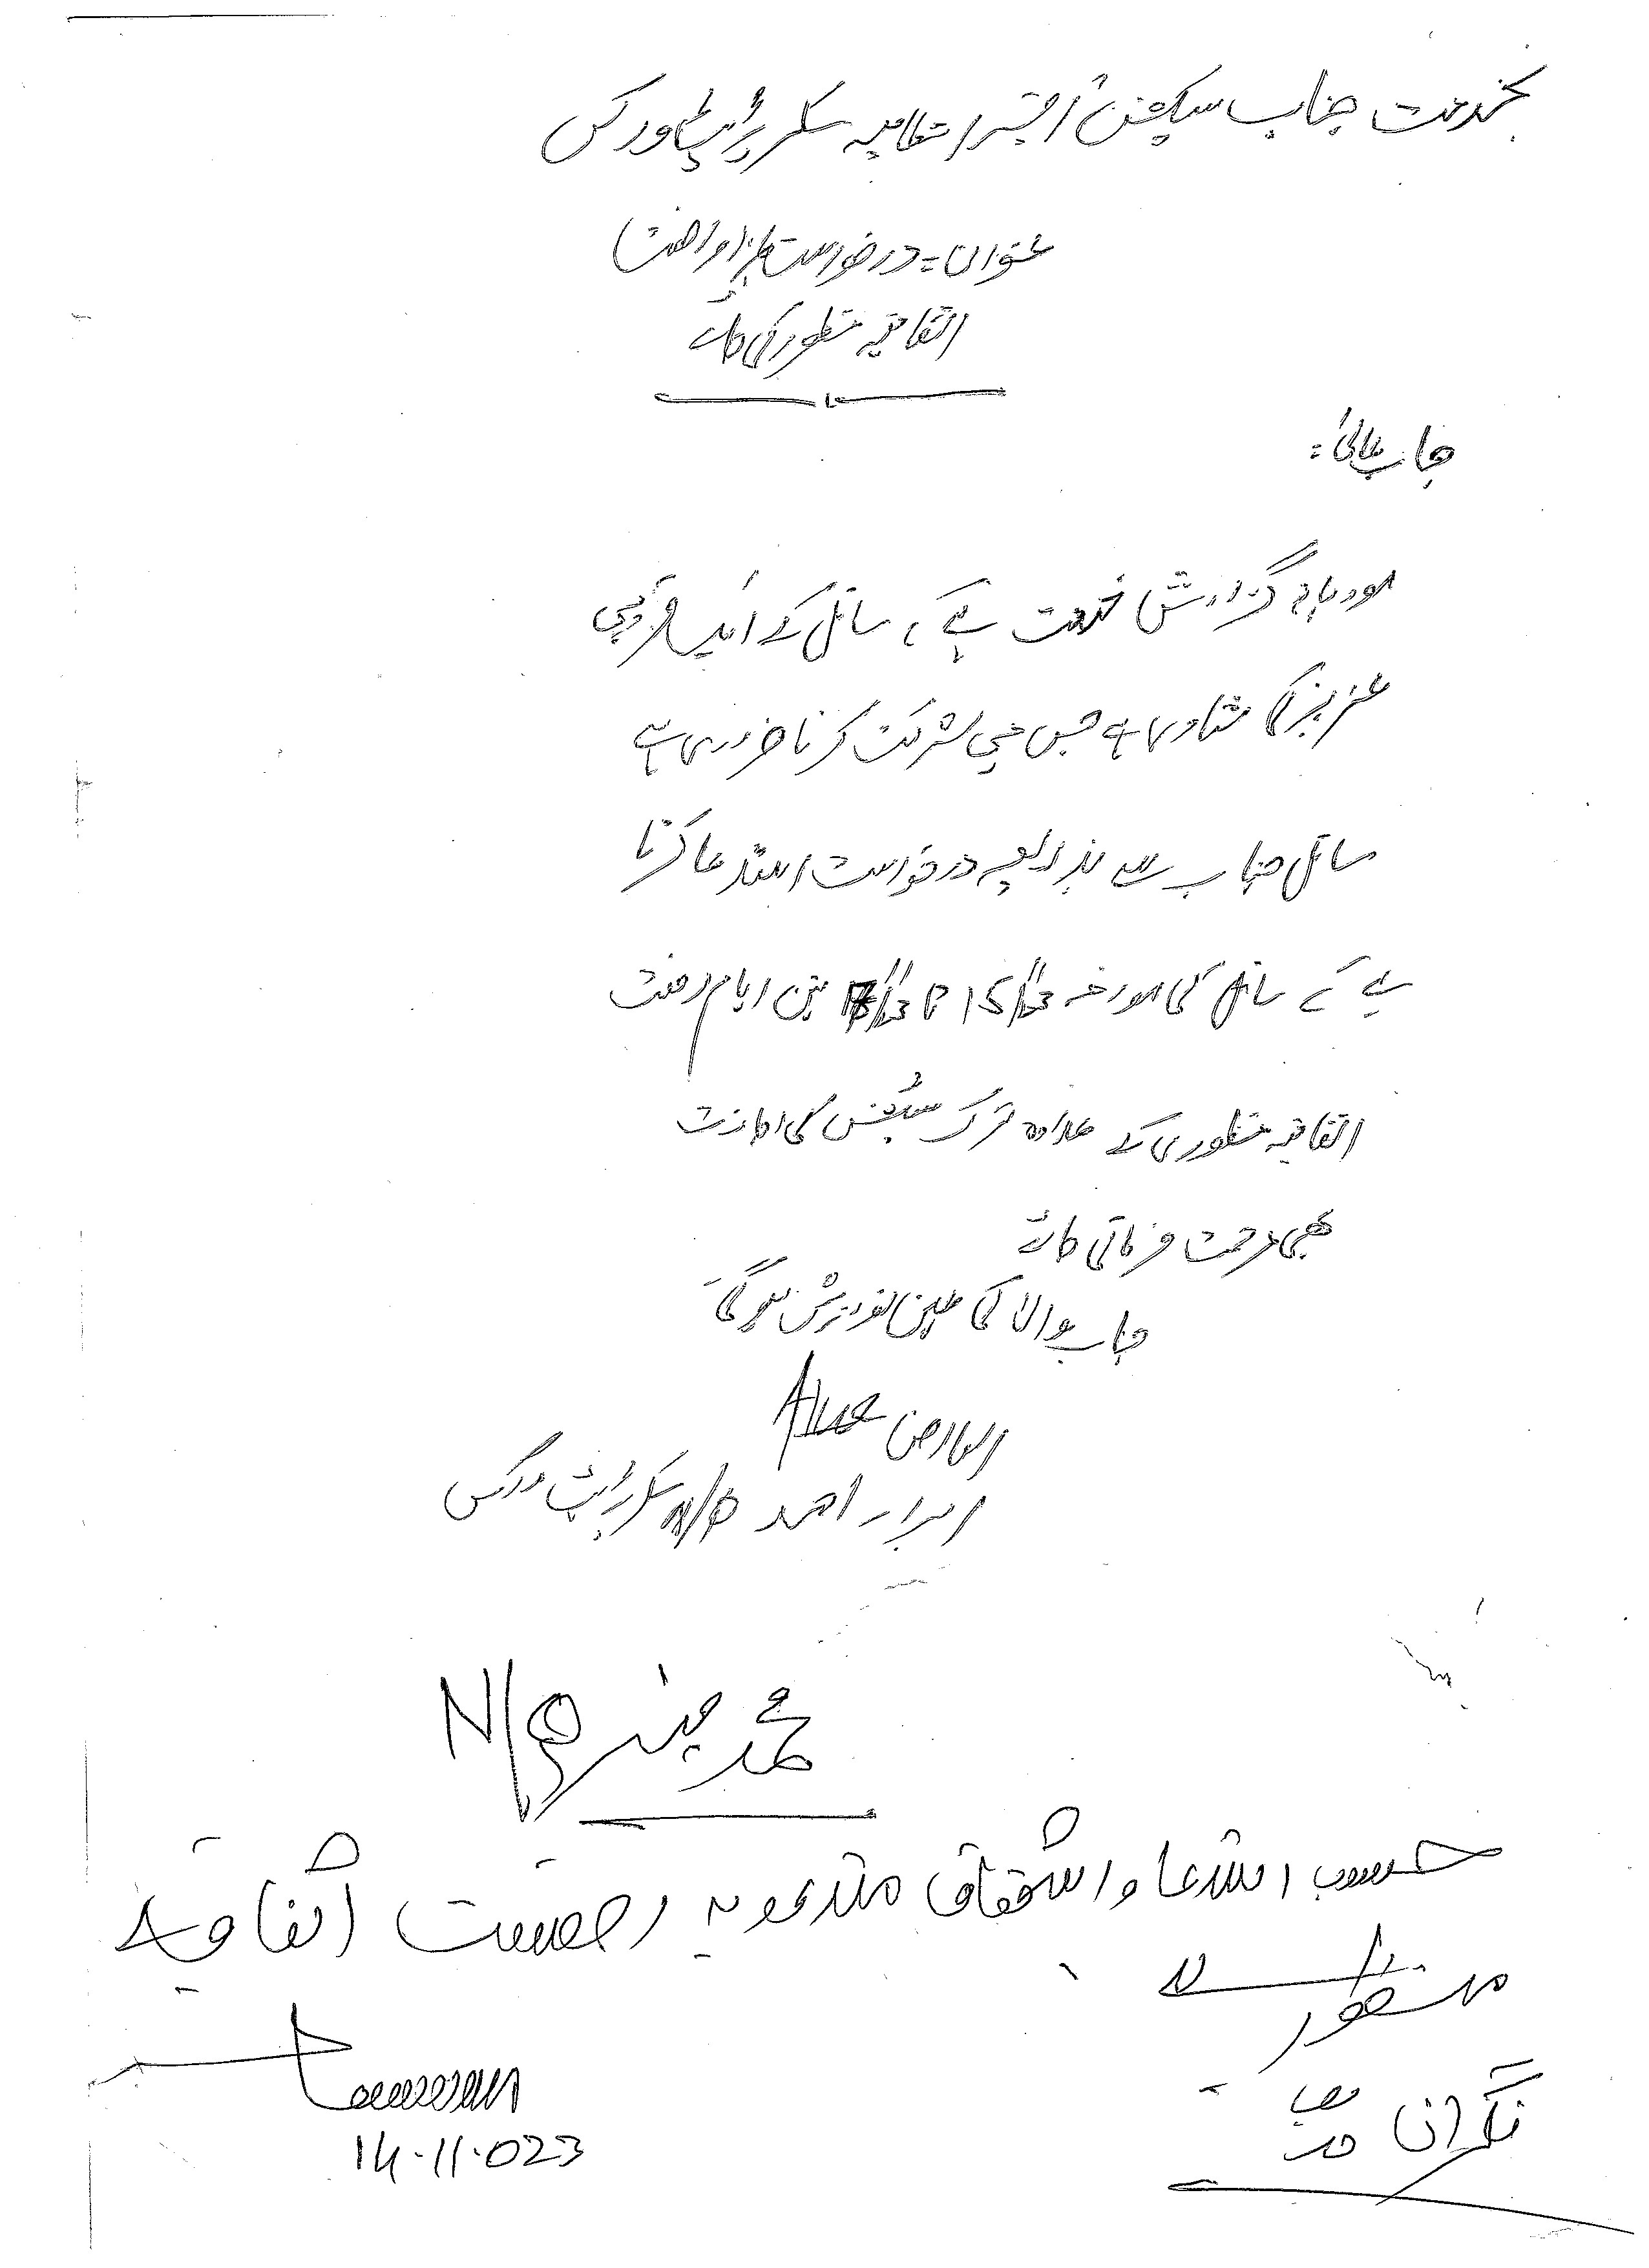 بخدمت جناب سیکشن آفیسر انتظامیہ سکر پرائیٹ ورکس
عنوان = درخواست برا رخصت
اتفاقیہ منظور کی جائے
جناب عالی =
مودبانہ گزارش خدمت ہے کہ سائل کے ایک قریبی
عزیز کی شادی ہے جس میں شرکت کرنا ضروری ہے
سائل جناب سے بذریعہ درخواست استدعا کرتا
ہے کہ سائل کی مورخہ 15/11/23 تا 17/11/23 تین ایام رخصت
اتفاقیہ منظوری کے علاوہ ترک سٹیشن کی اجازت
بھی مرحمت فرمائی جائے
جناب والا کی عین نوازش ہو گی
العارض
ابرار احمد N/Q سکر پرائیٹ ورکس
محمد منیر N/Q
حسب استدعا و اشفاق متدعویہ رخصت اتفاقیہ
منظور ہے
نگران
14.11.023